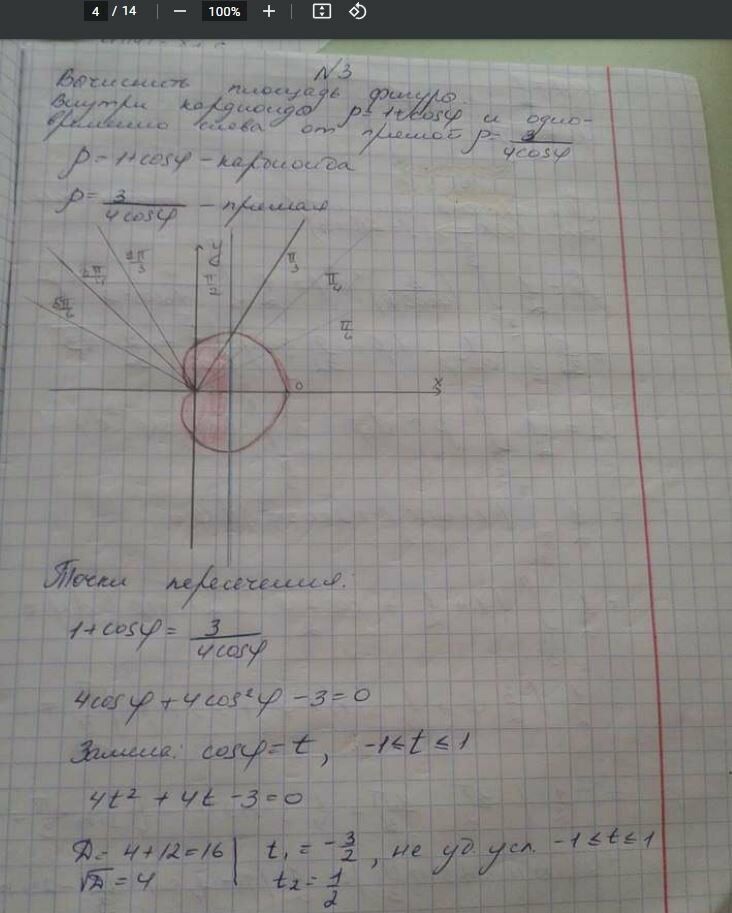 4 / 14 — 100% +
N3
Вычислить площадь фигуры
внутри кардиоиды ρ=1+cosφ и одно-
временно слева от прямой ρ= 3/4cosφ
ρ=1+cosφ - кардиоида
ρ= 3/4cosφ - прямая
y
2π/3
π/2
π/3
π/4
5π/6
π/6
x
0
Точки пересечения:
1+cosφ= 3/4cosφ
4cosφ+4cos²φ-3=0
Замена: cosφ=t, -1≤t≤1
4t²+4t-3=0
D=4+12=16 | t₁=-3/2, не уд усл. -1≤t≤1
√D=4 | t₂=1/2